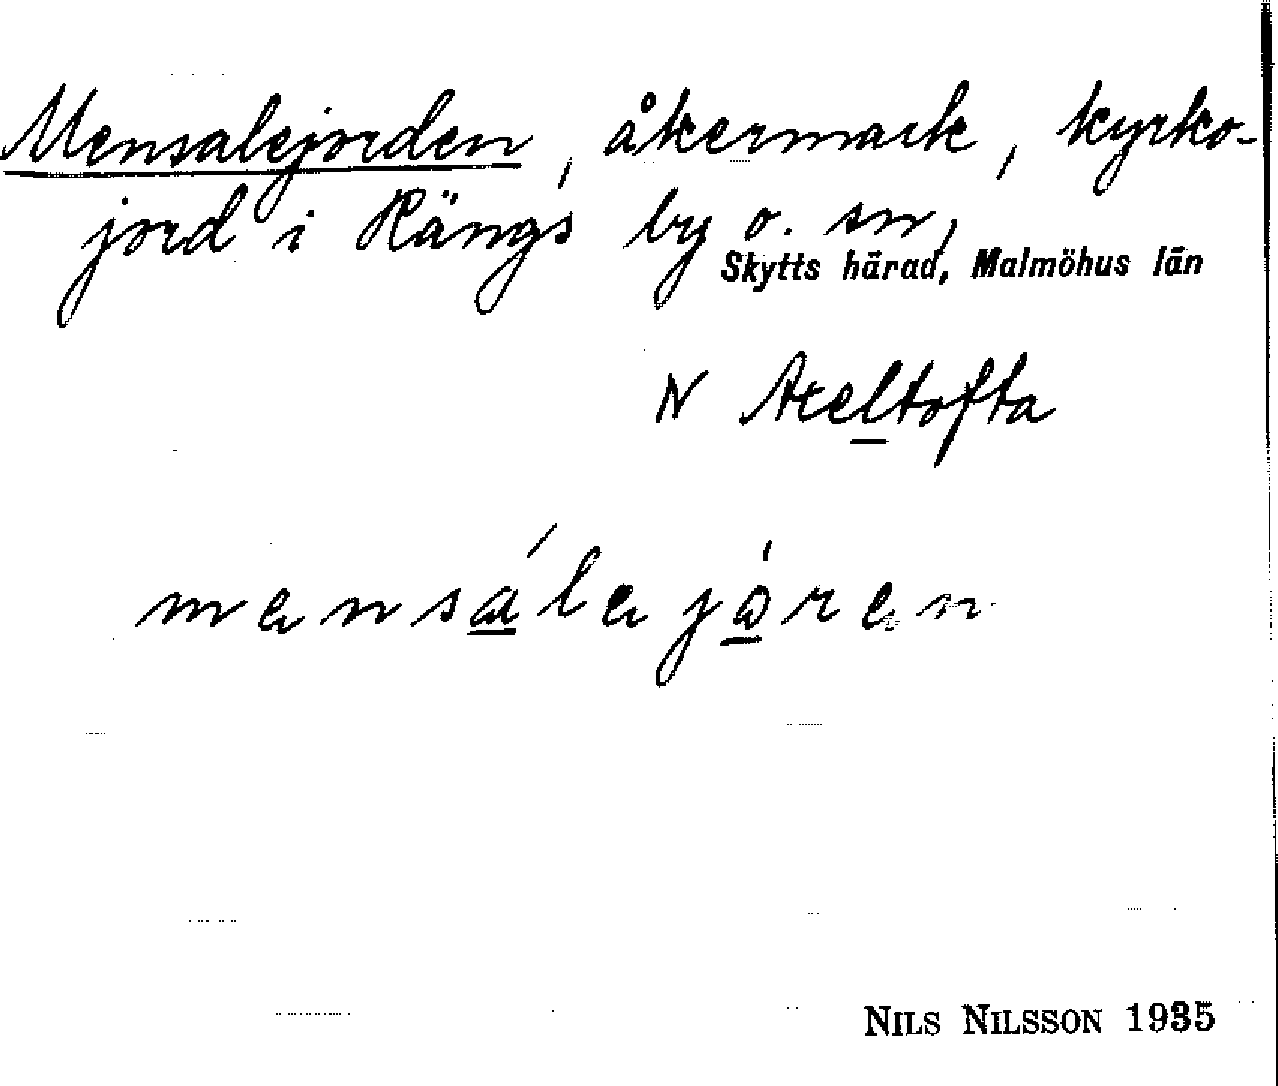 Mensalejorden, åkermark, kyrko-
jord i Rängs by o. sn,
Skytts härad, Malmöhus län
N Axeltofta
mensálejá̱ren
NILS NILSSON 1935